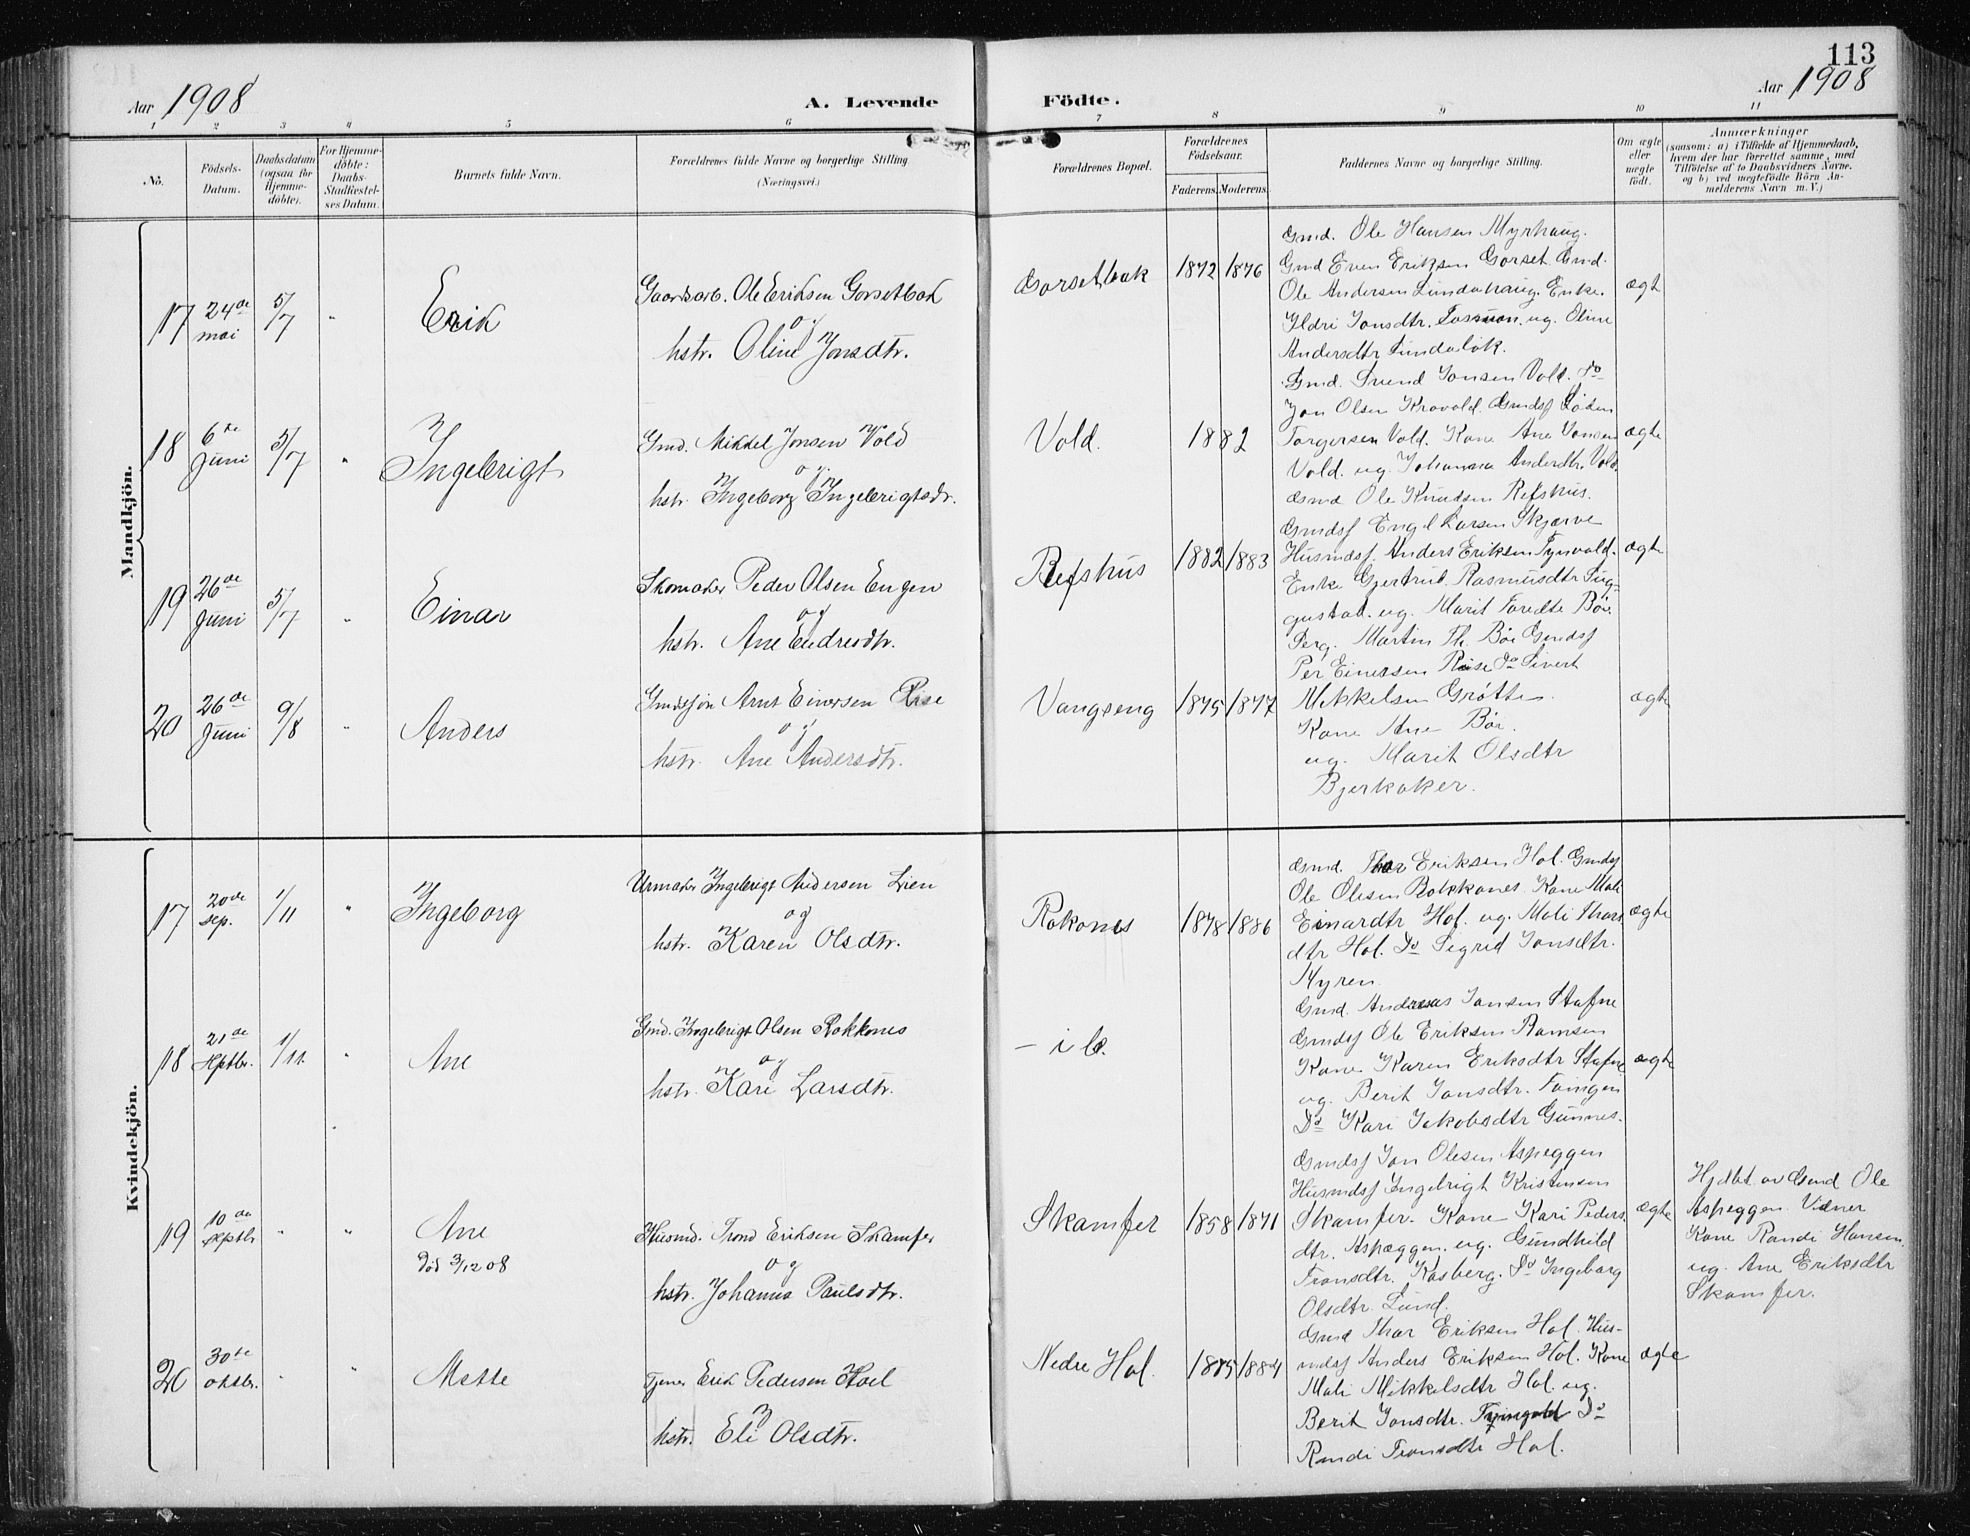 113
Aar 1908
A. Levende
Födte.
Aar 1908
1 2 3 4 5 6 7 8 9 10 11
No.
Födsels-
Datum.
Daabsdatum
(ogsaa for
Hjemme-
döbte).
For Hjemme-
döbte:
Daabs-
Stadfestel-
ses Datum.
Barnets fulde Navn.
Forældrenes fulde Navne og borgerlige Stilling
(Næringsvei.)
Forældrenes Bopæl.
Forældrenes
Födselsaar.
Faderens. Moderens.
Faddernes Navne og borgerlige Stilling.
Om ægte
eller
uægte
født.
Anmærkninger
(saasom: a) i Tilfælde af Hjemmedaab,
hvem der har forrettet samme, med
Tilföielse af to Daabsvidners Navne.
og b) ved uegtefödte Börn An-
melderens Navn m. V.)
Mandkjön.
17
24de
mai
5/7
"
Erik
Gaardsarb. Ole Eriksen Gorsetbak
og
hstr. Oline Jonsdtr.
Gorsetbak
1872 1876
Gmd. Ole Hansen Myrhaug.
Gmd Even Eriksen Gorset. Gmd.
Ole Andersen Lundahaug. Enke.
Ildri Jonsdtr. ug. Oline
Andersdtr Lundaløk.
ægt
18
6te
Juni
5/7
"
Ingebrigt
Gmd. Mikkel Jonsen Vold
og
hstr. Ingeborg Ingebrigtsdr.
Vold.
1882
Gmd. Svend Jonsen Vold. Do
Jon Olsen Krovold. Gmdsf
Torgersen Vold. Kone Ane Jonsen
Vold. ug. Johanna Andersdtr. Vold.
ægte
19
26de
Juni
5/7
"
Einar
Skomaker Peder Olsen Engen
og
hstr. Ane Endresdtr.
Refshus
1882 1883
Gmd Ole Knudsen Refshus.
Gmdsf Engel Larsen Skjærve
Husmdsf. Anders Eriksen
Enke Gjertrud Rasmusdtr
ug. Marit Bøe
ægte
20
26de
Juni
9/8
"
Anders
Gmdsøn Arnt Einersen Rise
og
hstr. Ane Andersdtr.
Vangseng
1875 1877
Martin Th. Bøe Gmdsf
Per Einersen Rise Do Sivert
Mikkelsen Grøtte
Kone Ane Bøe.
ug. Marit Olsdtr
Bjerkaker.
ægte
Kvindekjön.
17
20de
sep.
1/11
"
Ingeborg
Urmaker Ingebrigt Andersen Lien
og
hstr. Karen Olsdtr.
Rokones
1878 1886
Gmd. Thor Eriksen Hol. Gmdsf
Ole Olesen Rokkones. Kone Mali
Einardtr Hol. ug. Mali Thors
dtr Hol. Do Sigrid Jonsdtr.
Myren.
ægte
18
21de
Septbr.
1/11.
"
Ane
Gmd. Ingebrigt Olsen Rokkones
og
hstr. Kari Larsdtr.
— ib.
Gmd. Andreas Jansen Stafne
Gmdsf Ole Eriksen Ramsen
Kone Karen Eriksdtr Stafne
ug. Berit Jonsdtr.
Do Kari Jakobsdtr Gunnes.
ægte
19
10de
septbr
"
"
Ane
Død 3/12 08
Husmd. Trond Eriksen Skamfer
og
hstr. Johanna Paulsdtr.
Skamfer
1858 1871
Gmdsf Jon Olesen Aspeggen
Husmdsf Ingebrigt Kristensen
Skamfer. Kone Kari Peders
dtr. Aspæggen. ug. Gundhild
Tronsdtr. Kasberg. Do Ingeborg
Olsdtr. Lund.
ægte
Hjdbt. av Gmd Ole
Aspeggen Vidner
Kone Randi Hansen.
ug. Ane Eriksdtr
Skamfer.
20
30te
oktbr.
"
"
Mette
Tjener Erik Pedersen Hoel
og
hstr. Eli Olsdtr.
Nedre Hol.
1885 1884
Gmd Thor Eriksen Hol. Hus-
mdsf Anders Eriksen Hol. Kone
Mali Mikkelsdtr Hol. ug.
Berit Jonsdtr. Do
Randi Tronsdtr Hol.
ægte